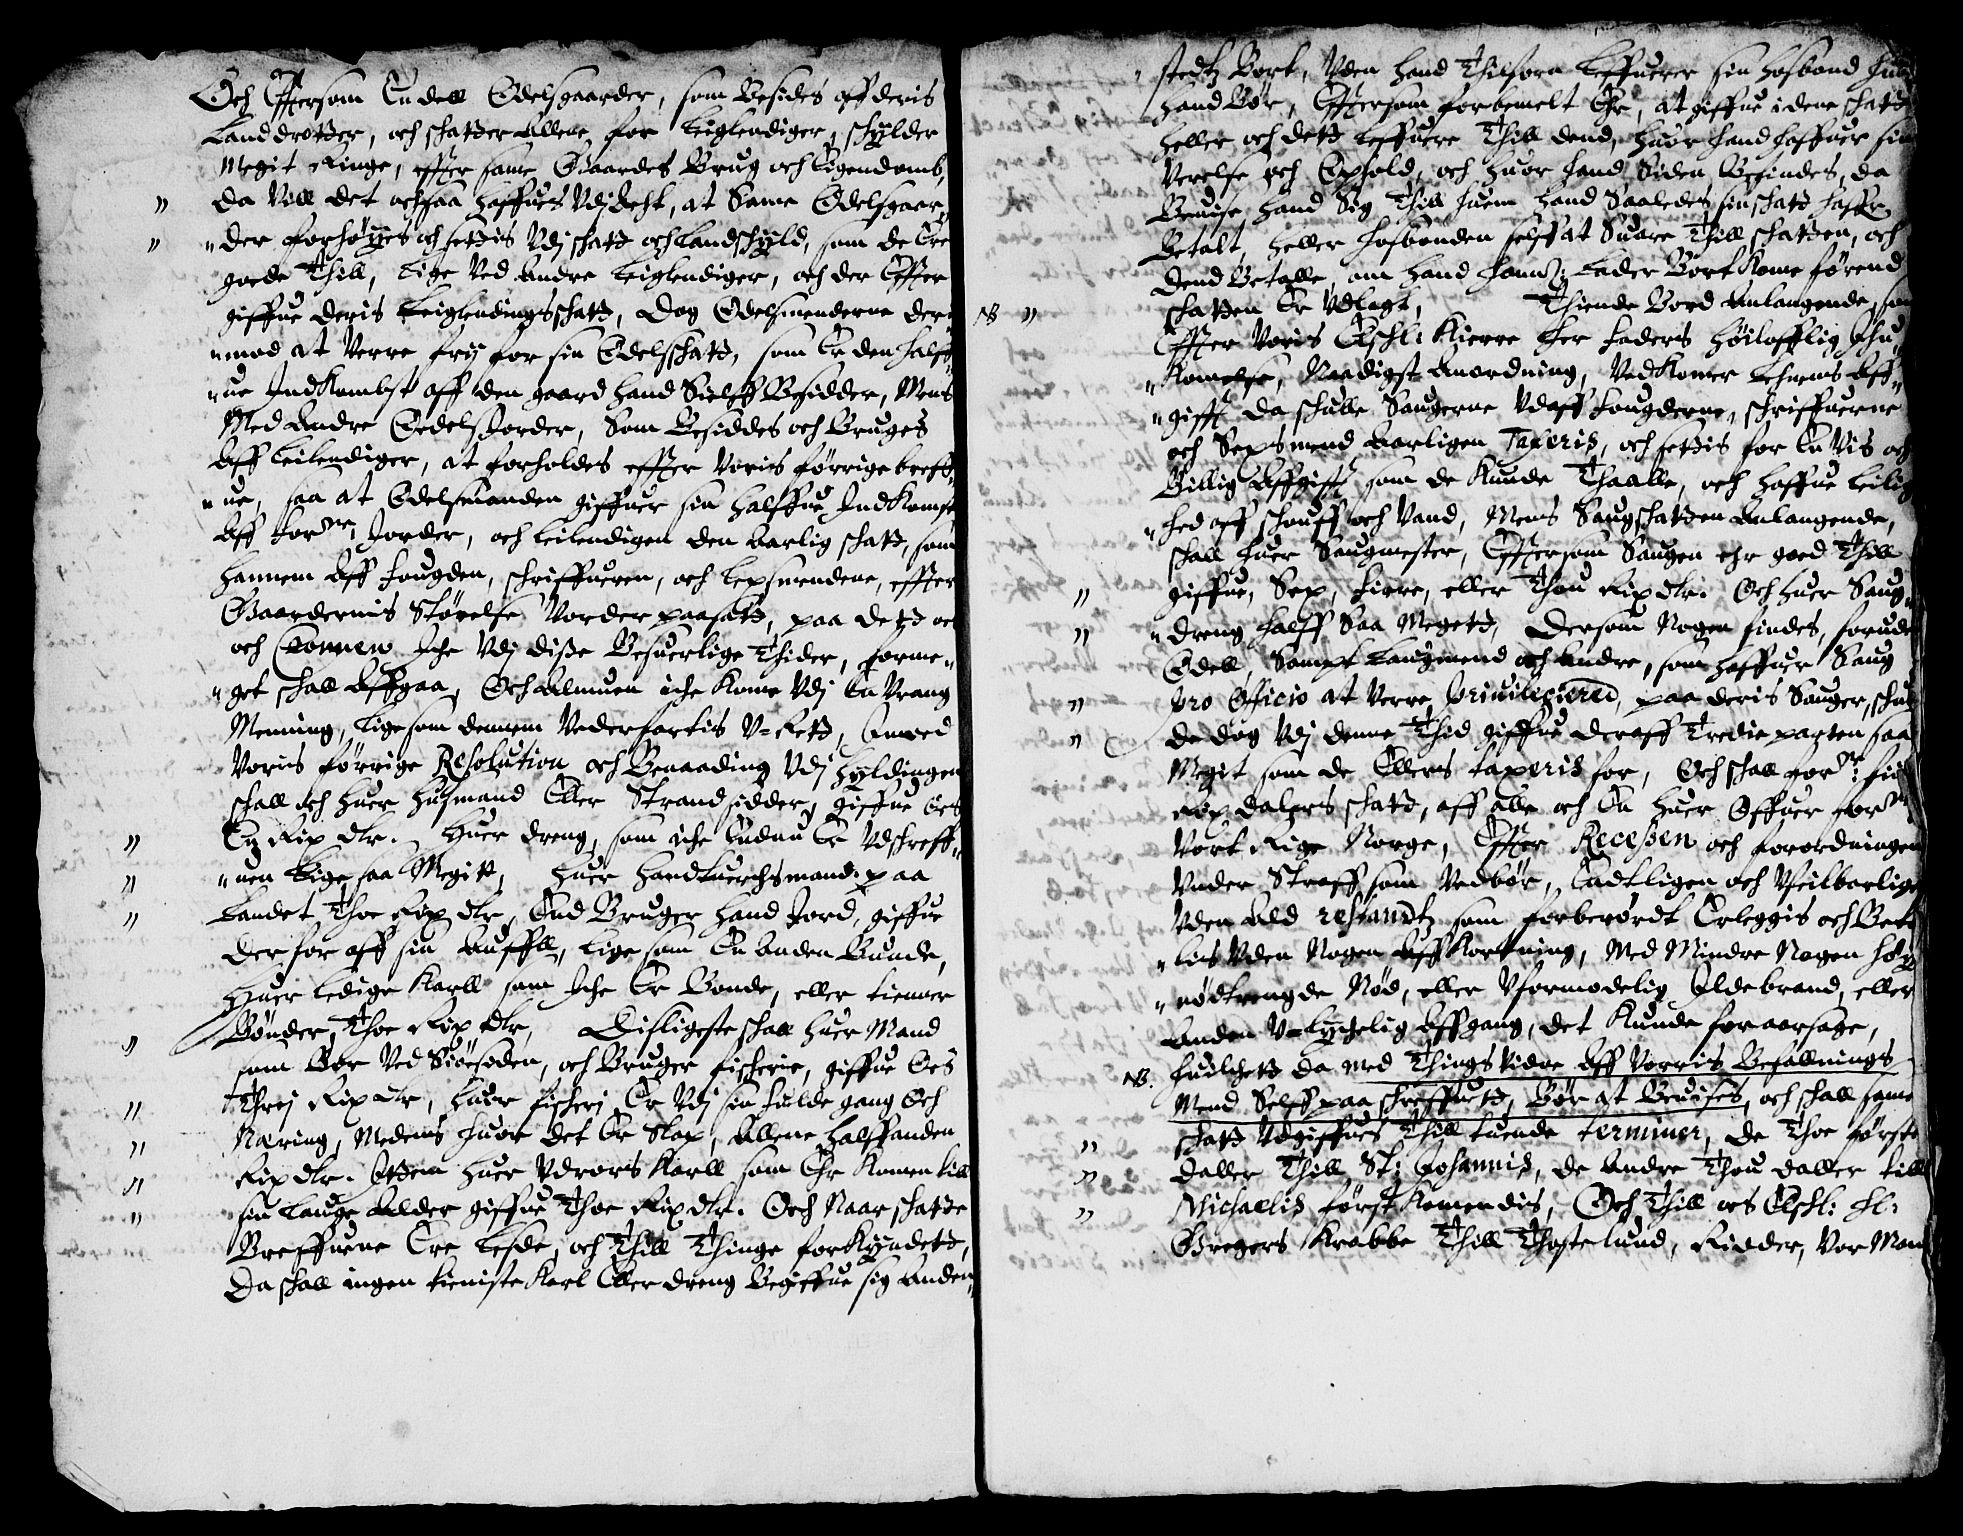 Och Efftersom En deell Odelsgaarder, som Besides aff deris
Landdrotter, och schatter allene for Leiglendinger, schylder
Megit Ringe, effter same Gaardes Brug och Eigendomb,
da Vill det ochsaa haffues Vdj Acht, at Same Odelsgaar„
„der forhøyes och settis Vdj schatt och Landschyld, som de Ere
goede Thill, Lige Ved andre Leiglendiger, och der Effter
giffue deris Leiglendingsschatt, Dog Odelsmenderne der
„mod at Verre frij for sin Odelsschatt, som Er den halff„
„ue IndKombst aff den gaard hand Sielff Besidder, Mens
Med Andre Odelsjorder, Som Besiddes och Bruges
Aff Leilendiger, at forholdes effter Voris forrige breff„
„ue, saa at Odelsmanden giffuer sin halffue IndKomst
Aff forne: Jorder, och Leilendigen den aarlig schatt, som
hannem Aff fougden, schriffueren, och Lexmendene, effter
Gaardernis Størelse Vorder paasatt, paa dett oc
och Cronnen Iche Vdj disse Besuerlige Thider, forme„
„get schall Affgaa, Och Almuen iche Kome Vdj En Vrang
Mening, Ligesom dennem Vederfartis V-Rett, Emod
Voris forrige Resolution och Benaading Vdj hyldingen
schall och huer husmand Eller Strandsidder, giffue Oes
En Rix dlr. Huer dreng, som iche Endnu Er Vdschreff„
„uen Lige saa Megit, Huer handtuerchsmand paa
Landet Thoe Rix dlr, End Bruger hand Jord, giffue
der for aff sin auffll, Ligesom En anden Bunde,
Huer Ledige Karll som Iche Er Bonde, eller tienner
Bønder, Thoe Rix dlr, Disligeste schall huer Mand
som Boer Ved Siøesiden, och Bruger fischerie, giffue Oes
Threj Rix dlr, huor fischerj Er Vdj sin fulde gang Och
Næring, Medens huor det Er Slap, Allene halffanden
Rix dlr. Ittem huer Vdrors Karll som Ehr Komen till
sin Lauge Alder giffue Thoe Rix dlr. Och Naar schatte
Breffuene Ere Lesde, och Thill Thinge forKyndett,
Da schall ingen tieniste Karl Eller dreng Begiffue sig Anden„
stedtz Bort, Vden hand Thilforn Leffuerer sin hosbond huis
hand Bør, Efftersom forbemelt Ehr, at giffue idene schatt
heller och dett Leffuere Thill dend, huor hand haffuer sin
Verelse och Ophold, och huor hand Siden Befindes, da
Beuise hand Sig Thill huem hand Saaledes sin schatt haffr
Betalt, heller hosbonden selff at Suare Thill schatten, och
Dend Betalle, om hand hannem Lader Bort Kome førend
NB „ schatten Er Vdlagt, Thiende Bord Anlangende, som
Effter Voris Elschl: Kierre Her faders Høilofflig Ihu
„Komelse, Naadigst Anordning, VedKomer Lehnens Aff„
„gifft da schulle Saugerne Vdaff fougderne, schriffuerne
och Sexsmend Aarligen Taxeris, och settis for En Vis och
Billig Affgifft som de Kunde Thaalle, och haffue Leilig
„hed aff schouff och Vand, Mens Saugschatten Anlangende,
schall huer Saugmester, Efftersom Saugen ehr goed Thill
giffue, Sex, fiere, eller Thou Rix dlr. Och huer Saug„
„dreng halff Saa Megett, Dersom Nogen findes, foruden
Edell, Sampt Laugmend och Andre, som haffuer Saug
pro Officio at Verre Priuilegiered, paa deris Sauger, schulle
de dog Vdj denne Thid giffue deraff Tredie parten saa
Megit som de Ellers taxeris for, Och schall forne: fire
Rix dalers schatt, aff alle och En huer Offuer forne
Vort Rige Norge, Effter Recessen och forordningen
Vnder Straff som Vedbør, Endtligen och Vfeilbarlige
Vden Ald restandtz som forberørdt Erleggis och Beta
„lis Vden Nogen AffKortning, Med Mindre Nogen høy
„nødtrengde Nød, eller Vformodelig Ildebrand, eller
Anden V-Lychelig Affgang, det Kunde foraarsage,
NB. huilchett da med Thingsvidne Aff Vorris Befallnings
Mend Selff paaschreffuett, Bør at Beuises, och schall same
schatt Vdgiffues Thill tuende terminer, De Thoe første
daller Thill St: Johannis, de andre Thou daller till
Michaelis først Komendis, Och Thill oes Elschl: Hl:
Gregers Krabbe Thill Thostelund, Ridder, Vor Man